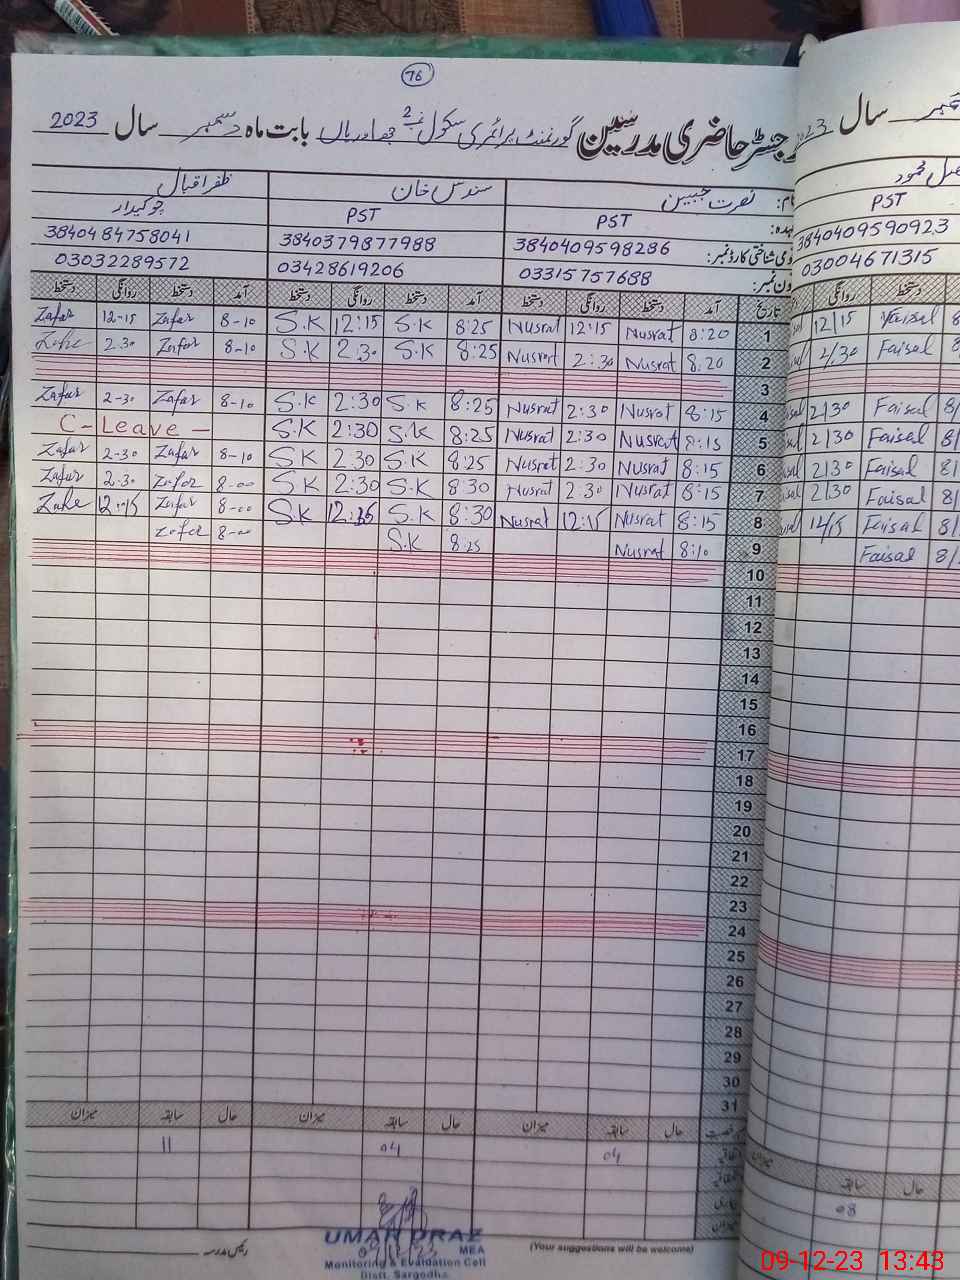 76
رجسٹر حاضری مدرسین گورنمنٹ پرائمری سکول نمبر 2 بابت ماہ دسمبر سال 2023
نصرت جبیں سندس خان ظفر اقبال
PST PST چوکیدار
3840409598286 3840379877988 3840484758041
03315757688 03428619206 03032289572
تاریخ آمد دستخط روانگی دستخط آمد دستخط روانگی دستخط آمد دستخط روانگی دستخط
1 8:20 Nusrat 12:15 Nusrat 8:25 S.K 12:15 S.K 8-10 Zafar 12-15 Zafar
2 8:20 Nusrat 2:30 Nusrat 8:25 S.K 2:30 S.K 8-10 Zafar 2.30
3
4 8:15 Nusrat 2:30 Nusrat 8:25 S.K 2:30 S.K 8-10 Zafar 2-30 Zafar
5 8:15 Nusrat 2:30 Nusrat 8:25 S.K 2:30 S.K C-Leave -
6 8:15 Nusrat 2:30 Nusrat 8:25 S.K 2:30 S.K 8-10 Zafar 2-30 Zafar
7 8:15 Nusrat 2:30 Nusrat 8:30 S.K 2:30 S.K 8-00 Zafar 2-30 Zafar
8 8:15 Nusrat 12:15 Nusrat 8:30 S.K S.K 8-00 Zafar 12-15
9 8:10 Nusrat 8:25 S.K 8-00 Zafar
10
11
12
13
14
15
16
17
18
19
20
21
22
23
24
25
26
27
28
29
30
31
حال سابقہ میزان حال سابقہ میزان حال سابقہ میزان
04 04 11
UMAR DRAZ
9/12/23 MEA
Monitoring & Evaluation Cell
Distt. Sargodha.
(Your suggestions will be welcome)
رئیس مدرسہ
سال 2023
PST
3840409590923
03004671315
روانگی دستخط
12/15 Faisal
2/30 Faisal
2/30 Faisal
2/30 Faisal
2/30 Faisal
2/30 Faisal
12/15 Faisal
Faisal
حال سابقہ میزان
08
09-12-23 13:43